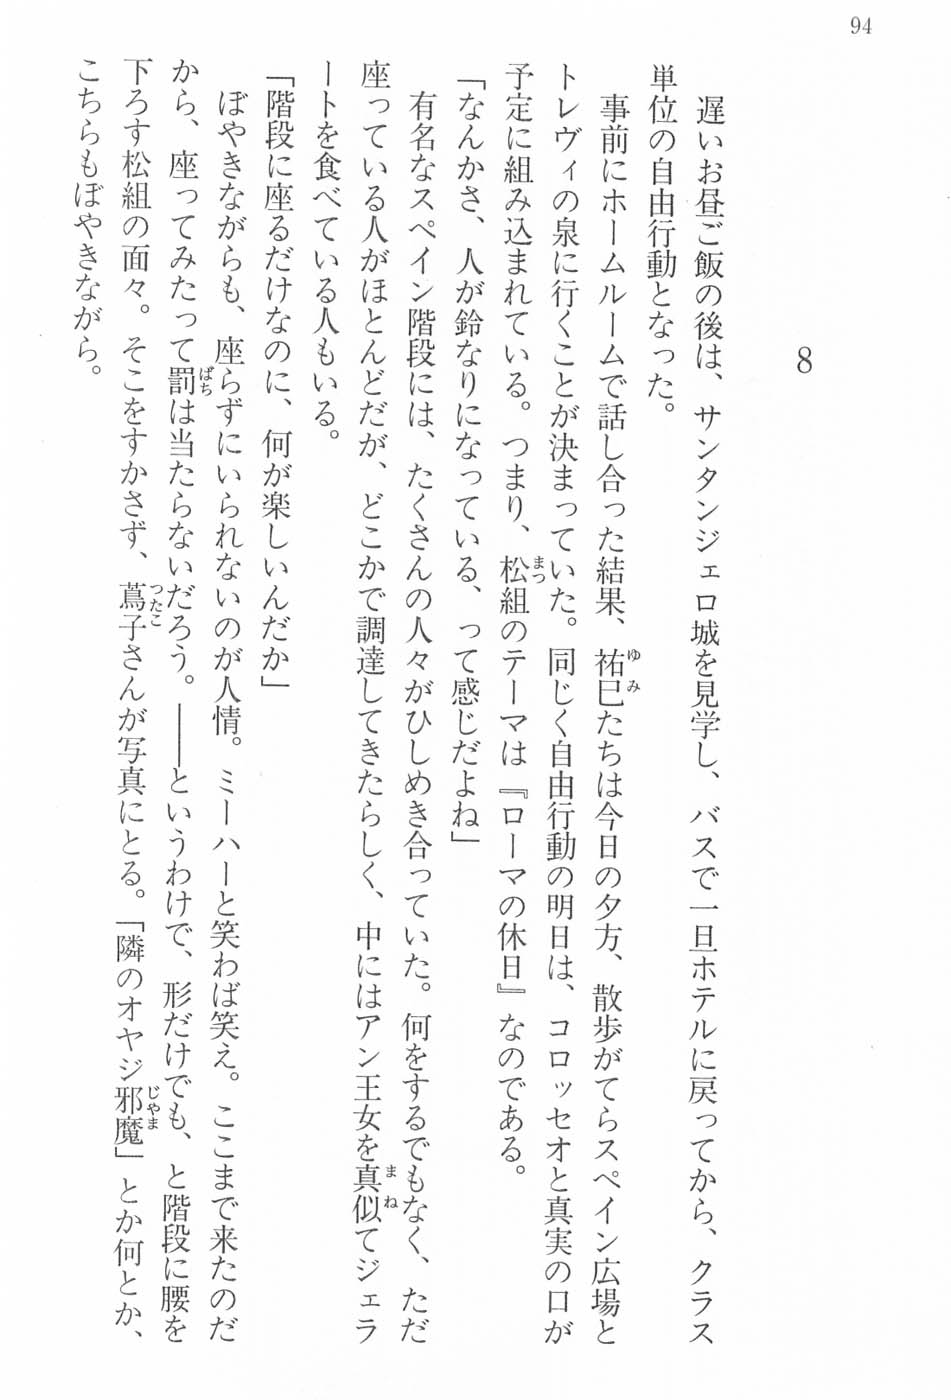 94
8
遅いお昼ご飯の後は、サンタンジェロ城を見学し、バスで一旦ホテルに戻ってから、クラス
単位の自由行動となった。
事前にホームルームで話し合った結果、祐巳たちは今日の夕方、散歩がてらスペイン広場と
トレヴィの泉に行くことが決まっていた。同じく自由行動の明日は、コロッセオと真実の口が
予定に組み込まれている。つまり、松組のテーマは『ローマの休日』なのである。
「なんかさ、人が鈴なりになっている、って感じだよね」
有名なスペイン階段には、たくさんの人々がひしめき合っていた。何をするでもなく、ただ
座っている人がほとんどだが、どこかで調達してきたらしく、中にはアン王女を真似てジェラ
ートを食べている人もいる。
「階段に座るだけなのに、何が楽しいんだか」
ぼやきながらも、座らずにいられないのが人情。ミーハーと笑わば笑え。ここまで来たのだ
から、座ってみたって罰は当たらないだろう。――というわけで、形だけでも、と階段に腰を
下ろす松組の面々。そこをすかさず、蔦子さんが写真にとる。「隣のオヤジ邪魔」とか何とか、
こちらもぼやきながら。